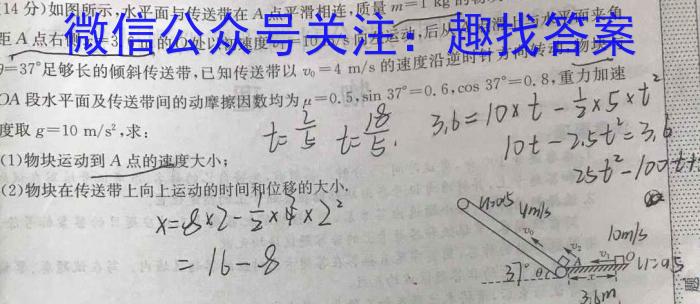 14分)如图所示,水平面与传送带在A点平滑相连,质量m=1 kg的物
微信公众号关注:趣找答案
距A点右侧
θ=37°足够长的倾斜传送带,已知传送带以v₀=4 m/s的速度沿逆时针方向转动,物块
OA段水平面及传送带间的动摩擦因数均为μ=0.5,sin 37°=0.6,cos 37°=0.8,重力加速
度取g=10 m/s²,求:
(1)物块运动到A点的速度大小;
(2)物块在传送带上向上运动的时间和位移的大小.
t=2/5 t=18/5.
3.6=10×t-1/2×5×t²
10t-2.5t²=3.6
25t²-100t+
x=8×2-1/2×4×2²
=16-8
μ=0.5
4m/s
v₀
v₂
10m/s
v₁
37°
θ
A
x
O
μ=0.5
3.6m